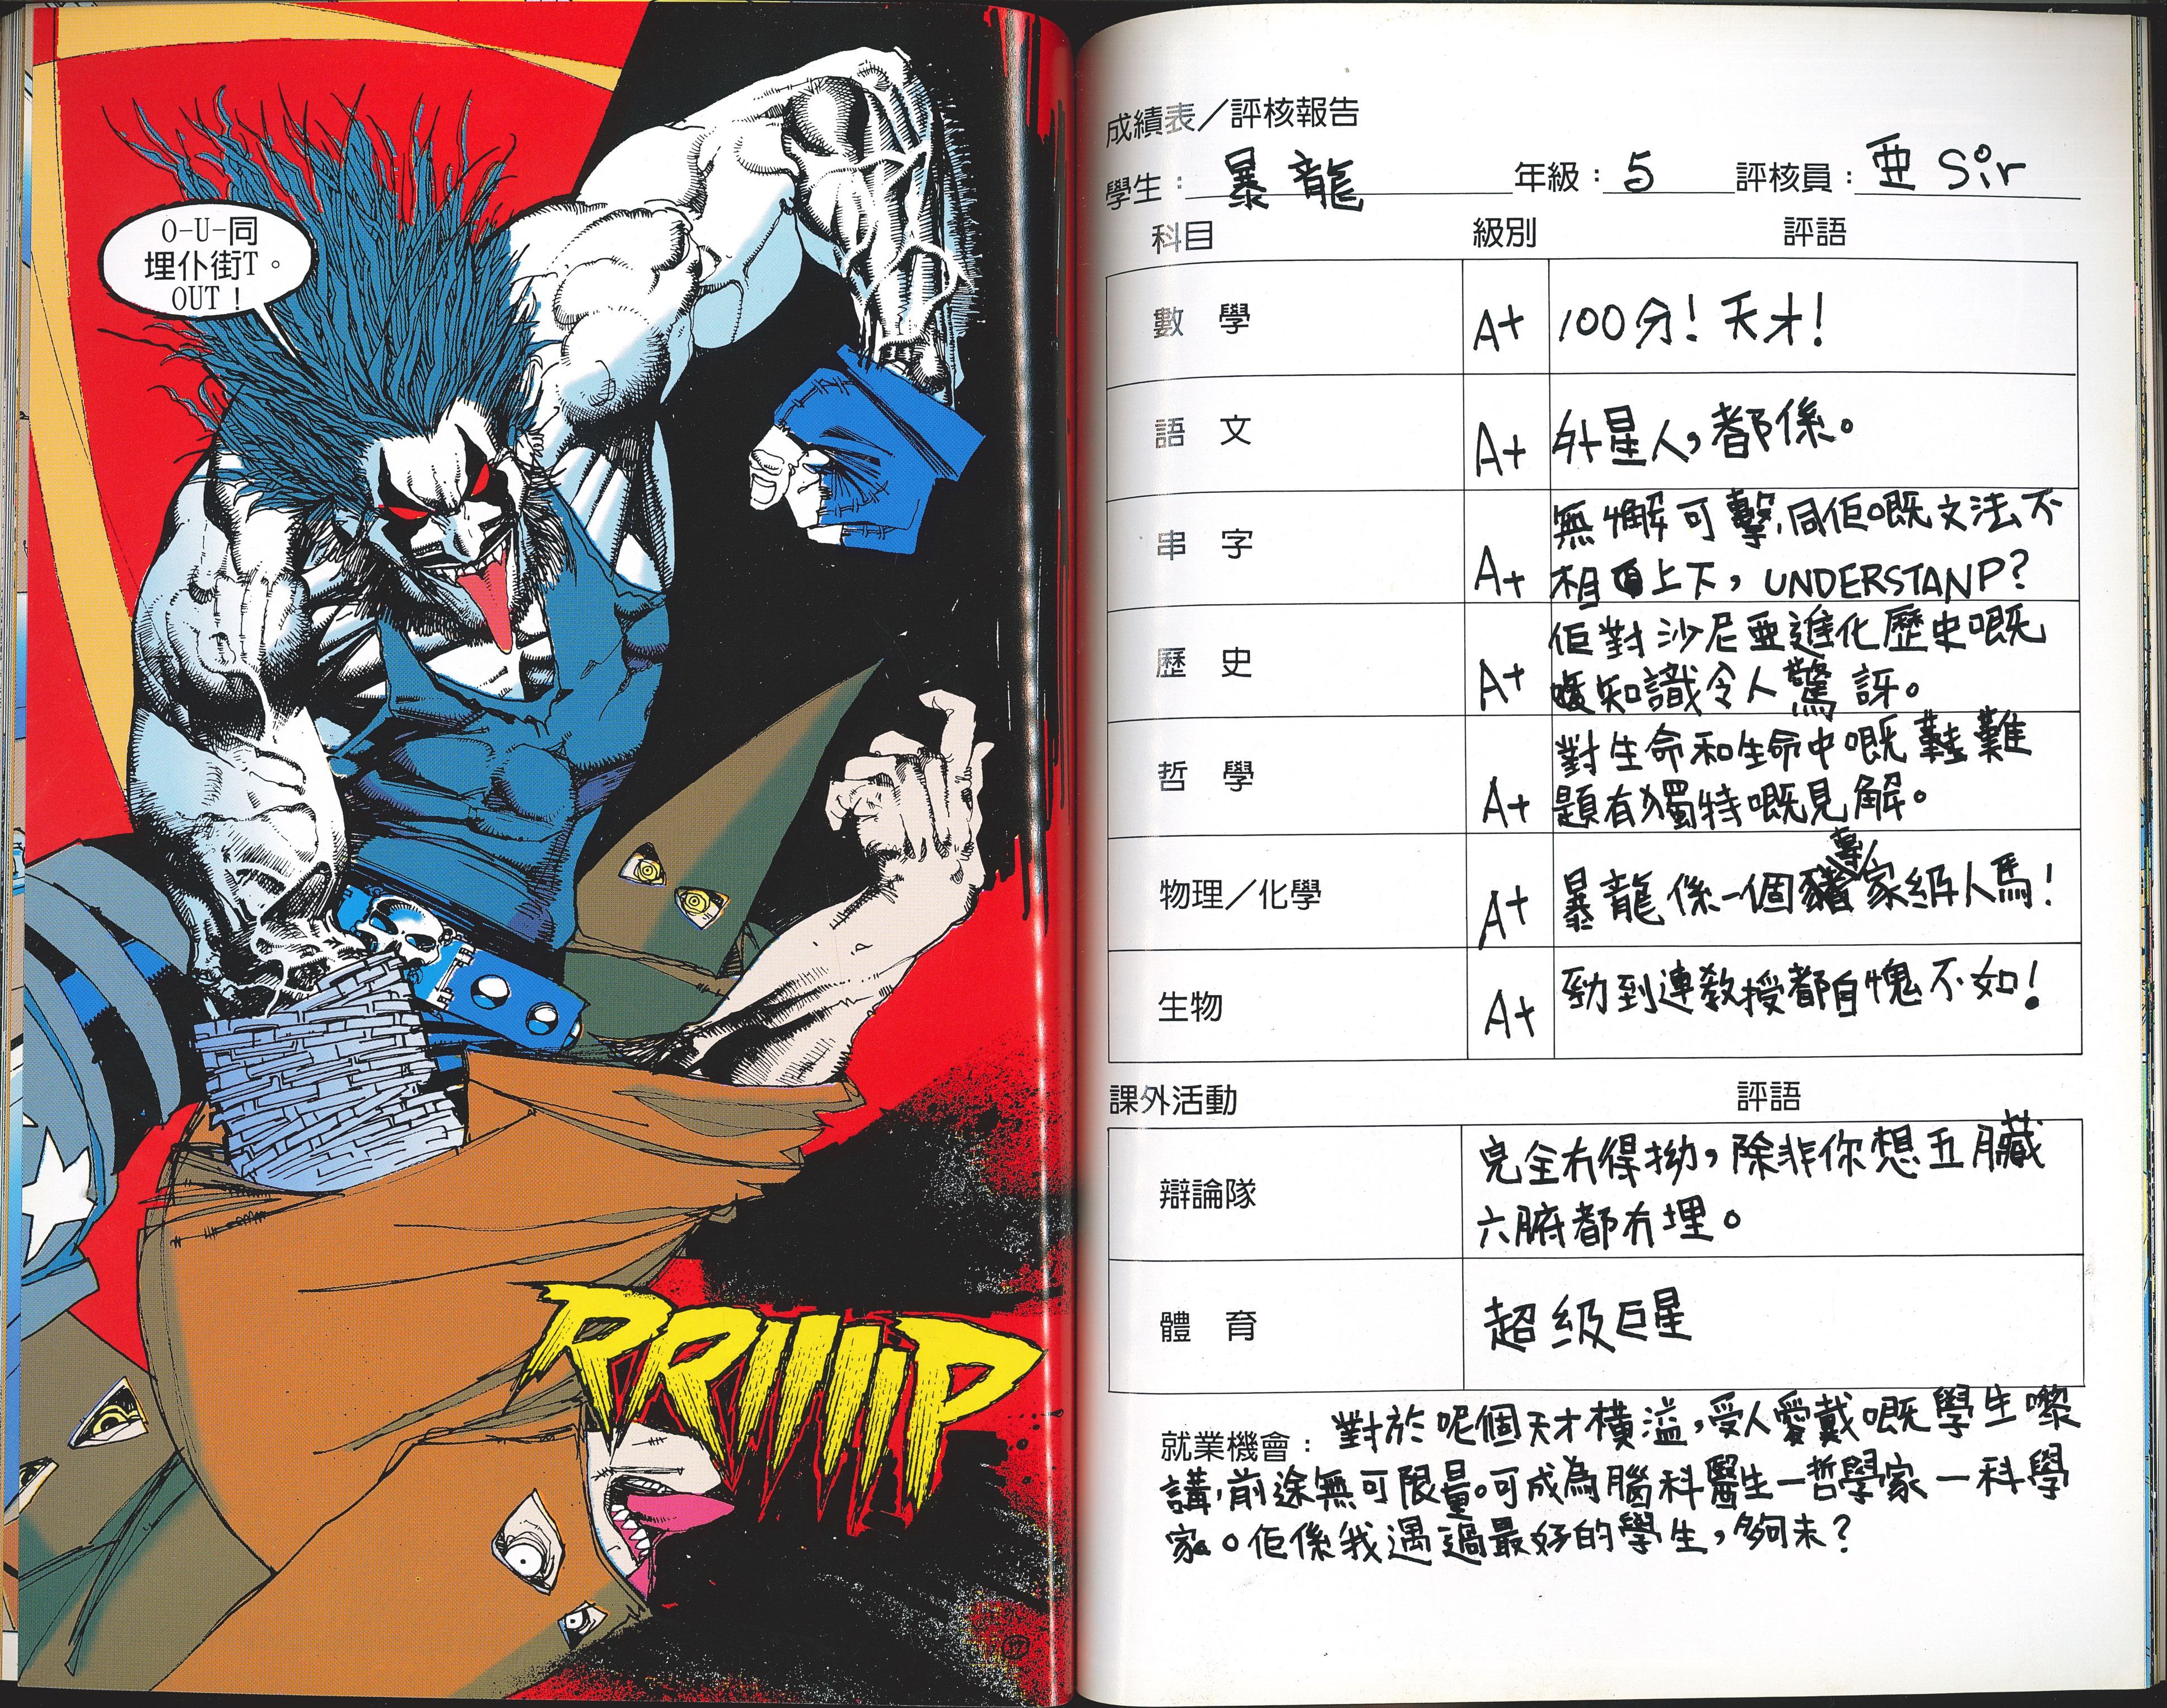 O-U-同
埋仆街T。
OUT！
RRIIIIP
17
成績表／評核報告
學生：暴龍 年級：5 評核員：亜 Sir
科目 級別 評語
數學 A+ 100分！天才！
語文 A+ 外星人，都係。
串字 A+ 無懈可擊，同佢嘅文法不
相上下，UNDERSTANP？
歷史 A+ 佢對沙尼亜進化歷史嘅
知識令人驚訝。
哲學 A+ 對生命和生命中嘅難
題有獨特嘅見解。
物理／化學 A+ 暴龍係一個專家級人馬！
生物 A+ 勁到連教授都自愧不如！
課外活動 評語
辯論隊 完全冇得拗，除非你想五臟
六腑都冇埋。
體育 超級巨星
就業機會：對於呢個天才橫溢，受人愛戴嘅學生嚟
講，前途無可限量。可成為腦科醫生一哲學家一科學
家。佢係我遇過最好的學生，夠未？